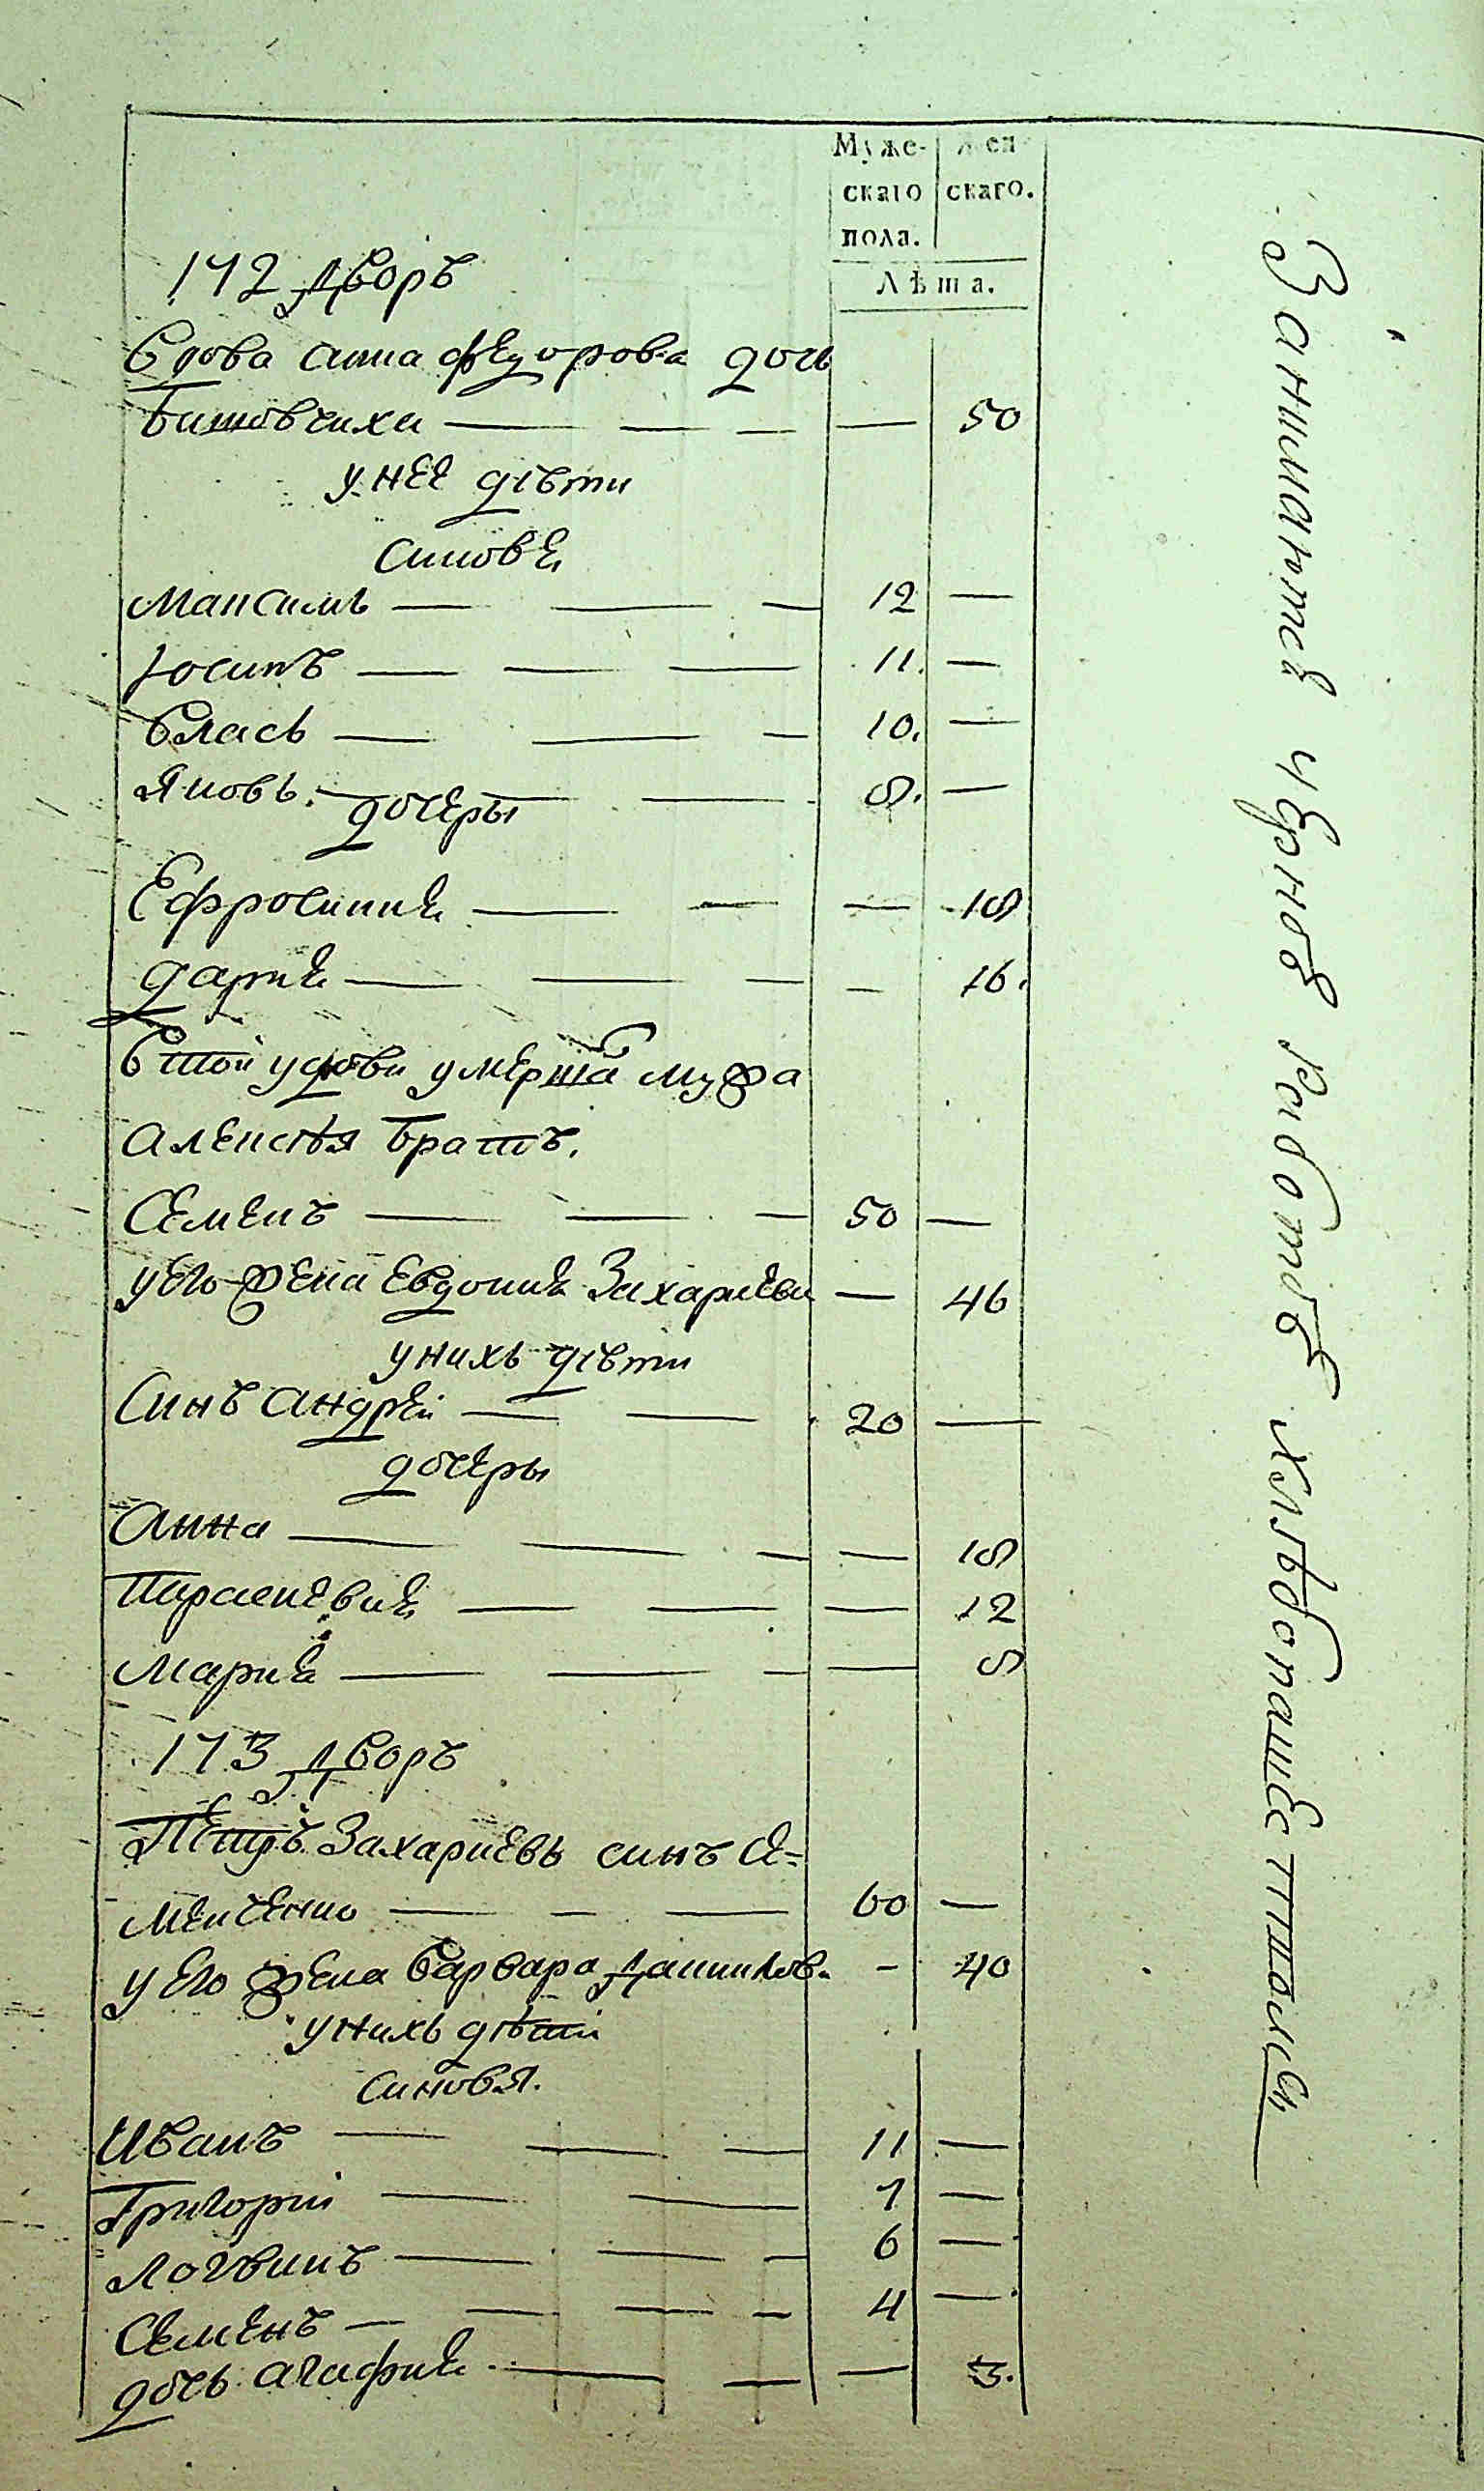 Муже- Жен
скаго скаго.
пола.
Лѣта.
172 дворъ
Вдова анна федорова дочь
Битовчиха — 50
у нее дѣти
синове
Максимъ 12 —
Іосипъ 11. —
Власъ 10. —
Яковъ. 8. —
дочеры
Ефросиния — 18
дария — 16.
В той удови умерша мужа
алексѣя братъ.
Семенъ 50 —
у его жена Евдокия Захариева — 46
у нихъ дѣти
Синъ андрей 20 —
дочеры
анна — 18
Параскевия — 12
Мария — 8
173 дворъ
Петръ Захариевъ синъ Я=
менченко 60 —
у его жена Варвара данилов. — 40
у нихъ дѣти
синовя.
Иванъ 11 —
Григорій 7 —
Логвинъ 6 —
Семенъ 4 —
дочь агафия — 3.
Занимаются черною работою хлѣбопашеством